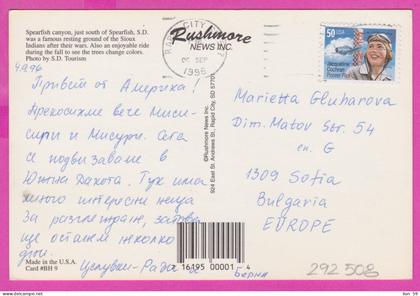 Spearfish canyon, just south of Spearfish, S.D.
was a famous resting ground of the Sioux
Indians after their wars. Also an enjoyable ride
during the fall to see the trees change colors.
Photo by S.D. Tourism
4.9.96
Привет от Америка!
Прекосихме вече Миси-
сипи и Мисури. Сега
се подвизаваме в
Южна Дакота. Тук има
много интересни неща
за разглеждане, затова
ще останем няколко
дни.
Целувки - Рада и Берни
Made in the U.S.A.
Card #BH 9
Rushmore
NEWS INC.
©Rushmore News Inc.
924 East St. Andrews St., Rapid City, SD 57701
16195 00001 4
RAPID CITY
SEP
1996
50 USA
Jacqueline
Cochran
Pioneer Pilot
Marietta Gluharova
Dim. Matov Str. 54
en. G
1309 Sofia
Bulgaria
EUROPE
292 508